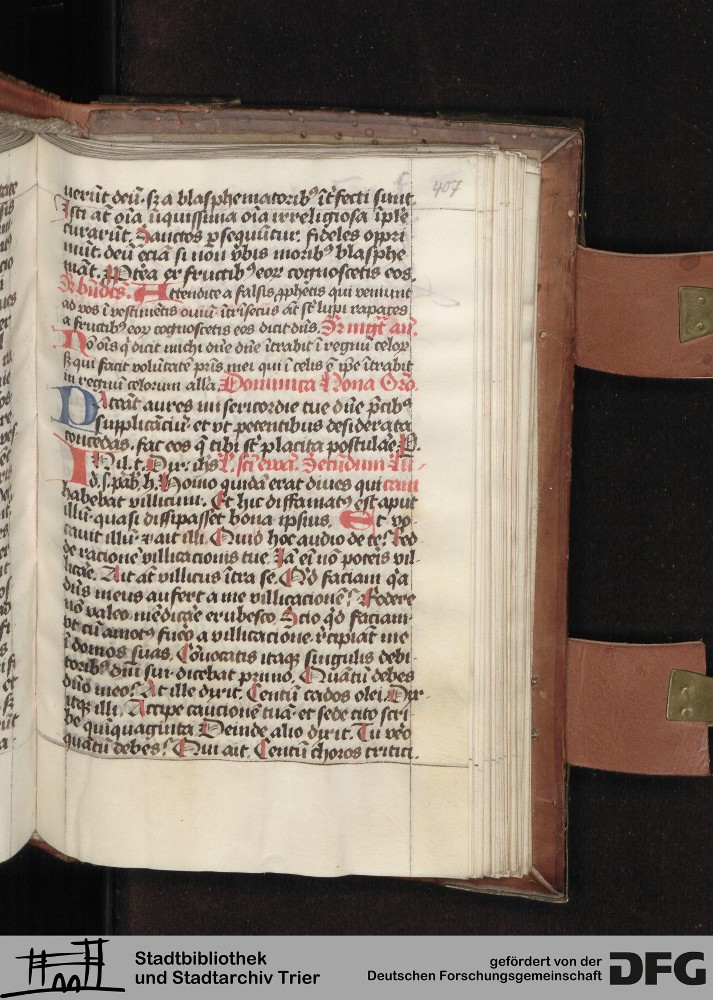 407
uerūt deū. sz a blasphematorib⁹ īt̄fecti sunt.
Isti at̄ oīa iniquissima oīa irreligiosa īple
curarūt. Sanctos ꝑsequūtur. fideles oppri
mūt. deū eciā si non v̄bis morib⁹ blasphe
māt. ꝓptea ex fructib⁹ eoꝝ cognoscetis eos.
Attendite a falsis ꝓphetis qui veniunt
ad vos ī vestimētis ouiū. ītrīsecus at̄ st̄ lupi rapaces
a fructib⁹ eoꝝ cognoscetis eos dicit dn̄s. In mgt̄ an̄.
No ōis q̄ dicit michi dn̄e dn̄e ītrabit ī regnū celoꝝ
sz qui facit volūtatē pr̄is mei qui ī celis ē ip̄e ītrabit
in regnū celorum alla Dominica Nona Oro.
Pateāt aures misericordie tue dn̄e p̄cib⁹
supplicāciū. et vt petentibus desiderata
concedas. fac eos q̄ tibi st̄ placita postulare. P.
In il. t. Dix. ih̄s L. sc̄i ewā. Secundum Lu-
cam
d. s. pāb. h. Homo quidā erat diues qui
habebat villicum. Et hic diffamat⁹ est aput
illū. quasi dissipasset bona ipsius. Et vo-
cauit illū. ⁊ ait illi. Quid hoc audio de te? Red
de racionē villicacionis tue. Iā eī nō poteis vil-
licāe. Ait at̄ villicus ītra se. Qͥd faciam q̄a
dn̄s meus aufert a me villicacionē? Fodere
nō valeo mēdicāe erubesco. Scio qͥd faciam.
vt cū amot⁹ fuēo a villicacione. r̄cipiāt me
ī domos suas. Cōuocatis itaqꝫ singulis debi-
torib⁹ dn̄i sui. dicebat primo. Quātū debes
dn̄o meo? At ille dixit. Centū cados olei. Dix-
itqꝫ illi. Accipe caucionē tuā. et sede cito scri-
be quīquaginta. Deinde alio dixit. Tu vēo
quātū debes? Qui ait. Centū choros tritici.
Stadtbibliothek
und Stadtarchiv Trier
gefördert von der
Deutschen Forschungsgemeinschaft DFG